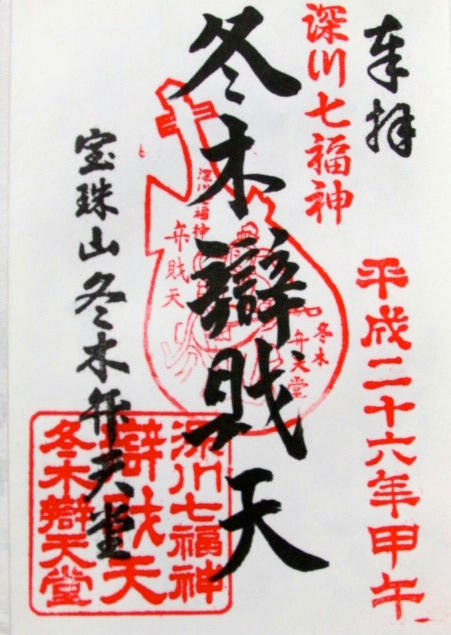 奉拝
深川七福神
平成二十六年甲午
冬木辯戝天
深川七福神
弁戝天
冬木
弁天堂
宝珠山冬木弁天堂
深川七福神
辯戝天
冬木辯天堂